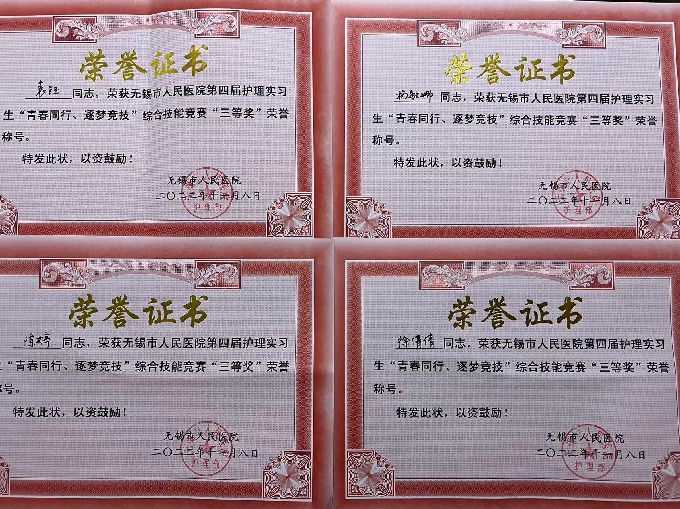 荣誉证书
袁钰同志，荣获无锡市人民医院第四届护理实习
生“青春同行、逐梦竞技”综合技能竞赛“三等奖”荣誉
称号。
特发此状，以资鼓励！
无锡市人民医院
二〇二三年十一月八日
荣誉证书
同志，荣获无锡市人民医院第四届护理实习
生“青春同行、逐梦竞技”综合技能竞赛“三等奖”荣誉
称号。
特发此状，以资鼓励！
无锡市人民医院
二〇二三年十一月八日
护理部
荣誉证书
同志、荣获无锡市人民医院第四届护理实习
生“青春同行、逐梦竞技”综合技能竞赛“三等奖”荣誉
称号。
特发此状，以资鼓励！
无锡市人民医院
二〇二三年十一月八日
护理部
荣誉证书
徐倩倩同志，荣获无锡市人民医院第四届护理实习
生“青春同行、逐梦竞技”综合技能竞赛“三等奖”荣誉
称号。
特发此状，以资鼓励！
无锡市人民医院
二〇二三年十一月八日
护理部